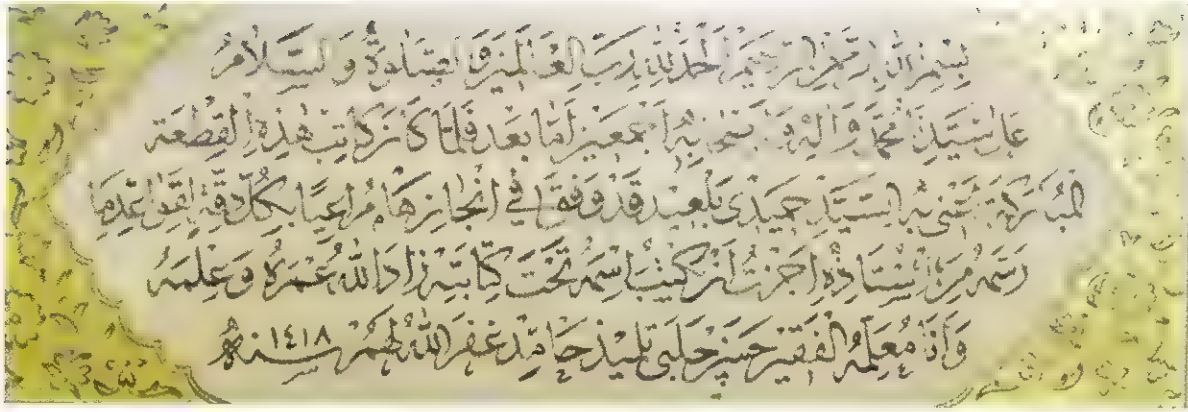 بسم الله الرحمن الرحيم الحمد لله رب العالمين والصلوة والسلام
على سيدنا محمد وآله وصحبه أجمعين أما بعد فلما كان كاتب هذه القطعة
المباركة السيد حميدي بلعيد قد وفق في انجازها مراعيا بكل دقة لقواعدها
رسمه من استاذه اجزت ان يكتب اسمه تحت كتابته زاد الله عمره وعلمه
وأنا معلمه الفقير حسن چلبي تلميذ حامد غفر الله لهم سنه ١٤١٨ه